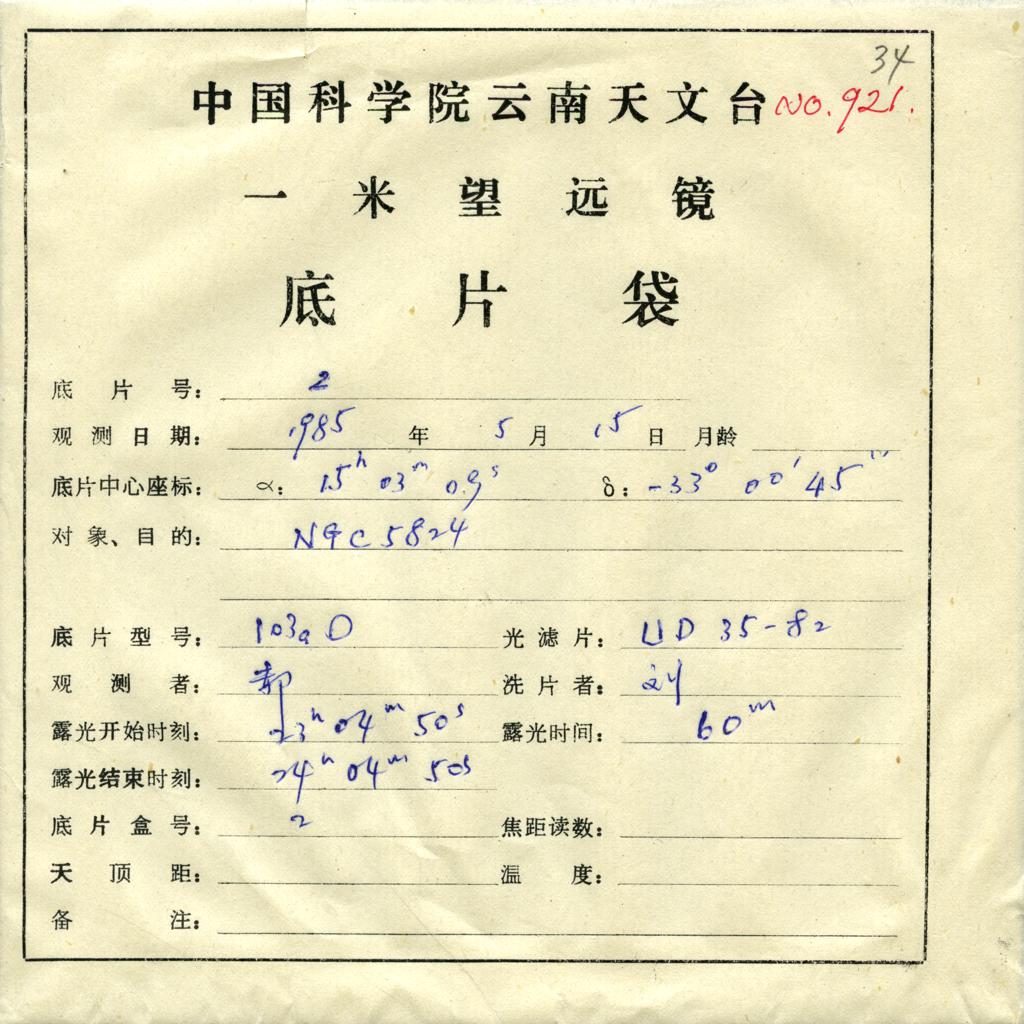 34
中国科学院云南天文台 NO.921.
一米望远镜
底片袋
底片号： 2
观测日期： 1985 年 5 月 15 日 月龄
底片中心座标： α： 15h 03m 09s δ： -33° 00′ 45″
对象、目的： NGC 5824
底片型号： 103a D 光滤片： UD 35-82
观测者： 郝 洗片者： 刘
露光开始时刻： 23h 04m 50s 露光时间： 60m
露光结束时刻： 24h 04m 50s
底片盒号： 2 焦距读数：
天顶距： 温度：
备注：